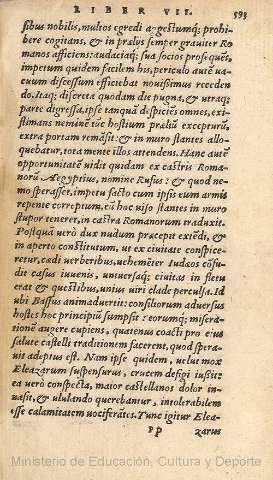 LIBER VII. 593
sibus nobilis, multos egredi agestumq; prohi
bere cogitans, & in prælijs semper grauiter Ro
manos afficiens: audaciaq; sua socios prosequẽs,
impetum quidem facilem his, periculo autẽ va
cuum discessum efficiebat nouissimus recceden
do. Itaq; discreta quodam die pugna, & vtraq;
parte digressa, ipse tanquã despiciẽs omnes, exi-
stimans neminẽ tũc hostium præliũ excepturũ,
extra portam remãsit: & in muro stantes allo-
quebatur, tota mente illos attendens. Hanc autẽ
opportunitatẽ uidit quidam ex castris Romano
norũ Aegyptius, nomine Rufus: & quod ne-
mo sperasset, impetu facto cum ipsis eum armis
repente correptum, cũ hoc uiso stantes in muro
stupor teneret, in castra Romanorum traduxit.
Postquã verò dux nudum præcepit extẽdi, &
in aperto constitutum, ut ex ciuitate conspice-
retur, cædi verberibus, uehemẽter Iudæos cõfu-
dit casus iuuenis, untuersaq; ciuitas in fletu
erat & questibus, unius uiri clade perculsa. Id
ubi Bassus animaduertit: consiliorum aduersus
hostes hoc principiũ sumpsit: eorumq; misera-
tionẽ augere cupiens, quatenus coacti pro eius
salute castelli traditionem facerent, quod spera-
uit adeptus est. Nam ipse quidem, velut mox
Eleazarum suspensurus, crucem defigi iussit:
ea verò conspecta, maior castellanos dolor in-
uasit, & ululando querebantur, intolerabilem
esse calamitatem vociferãtes. Tunc igitur Elea-
PP zarus
Ministerio de Educación, Cultura y Deporte